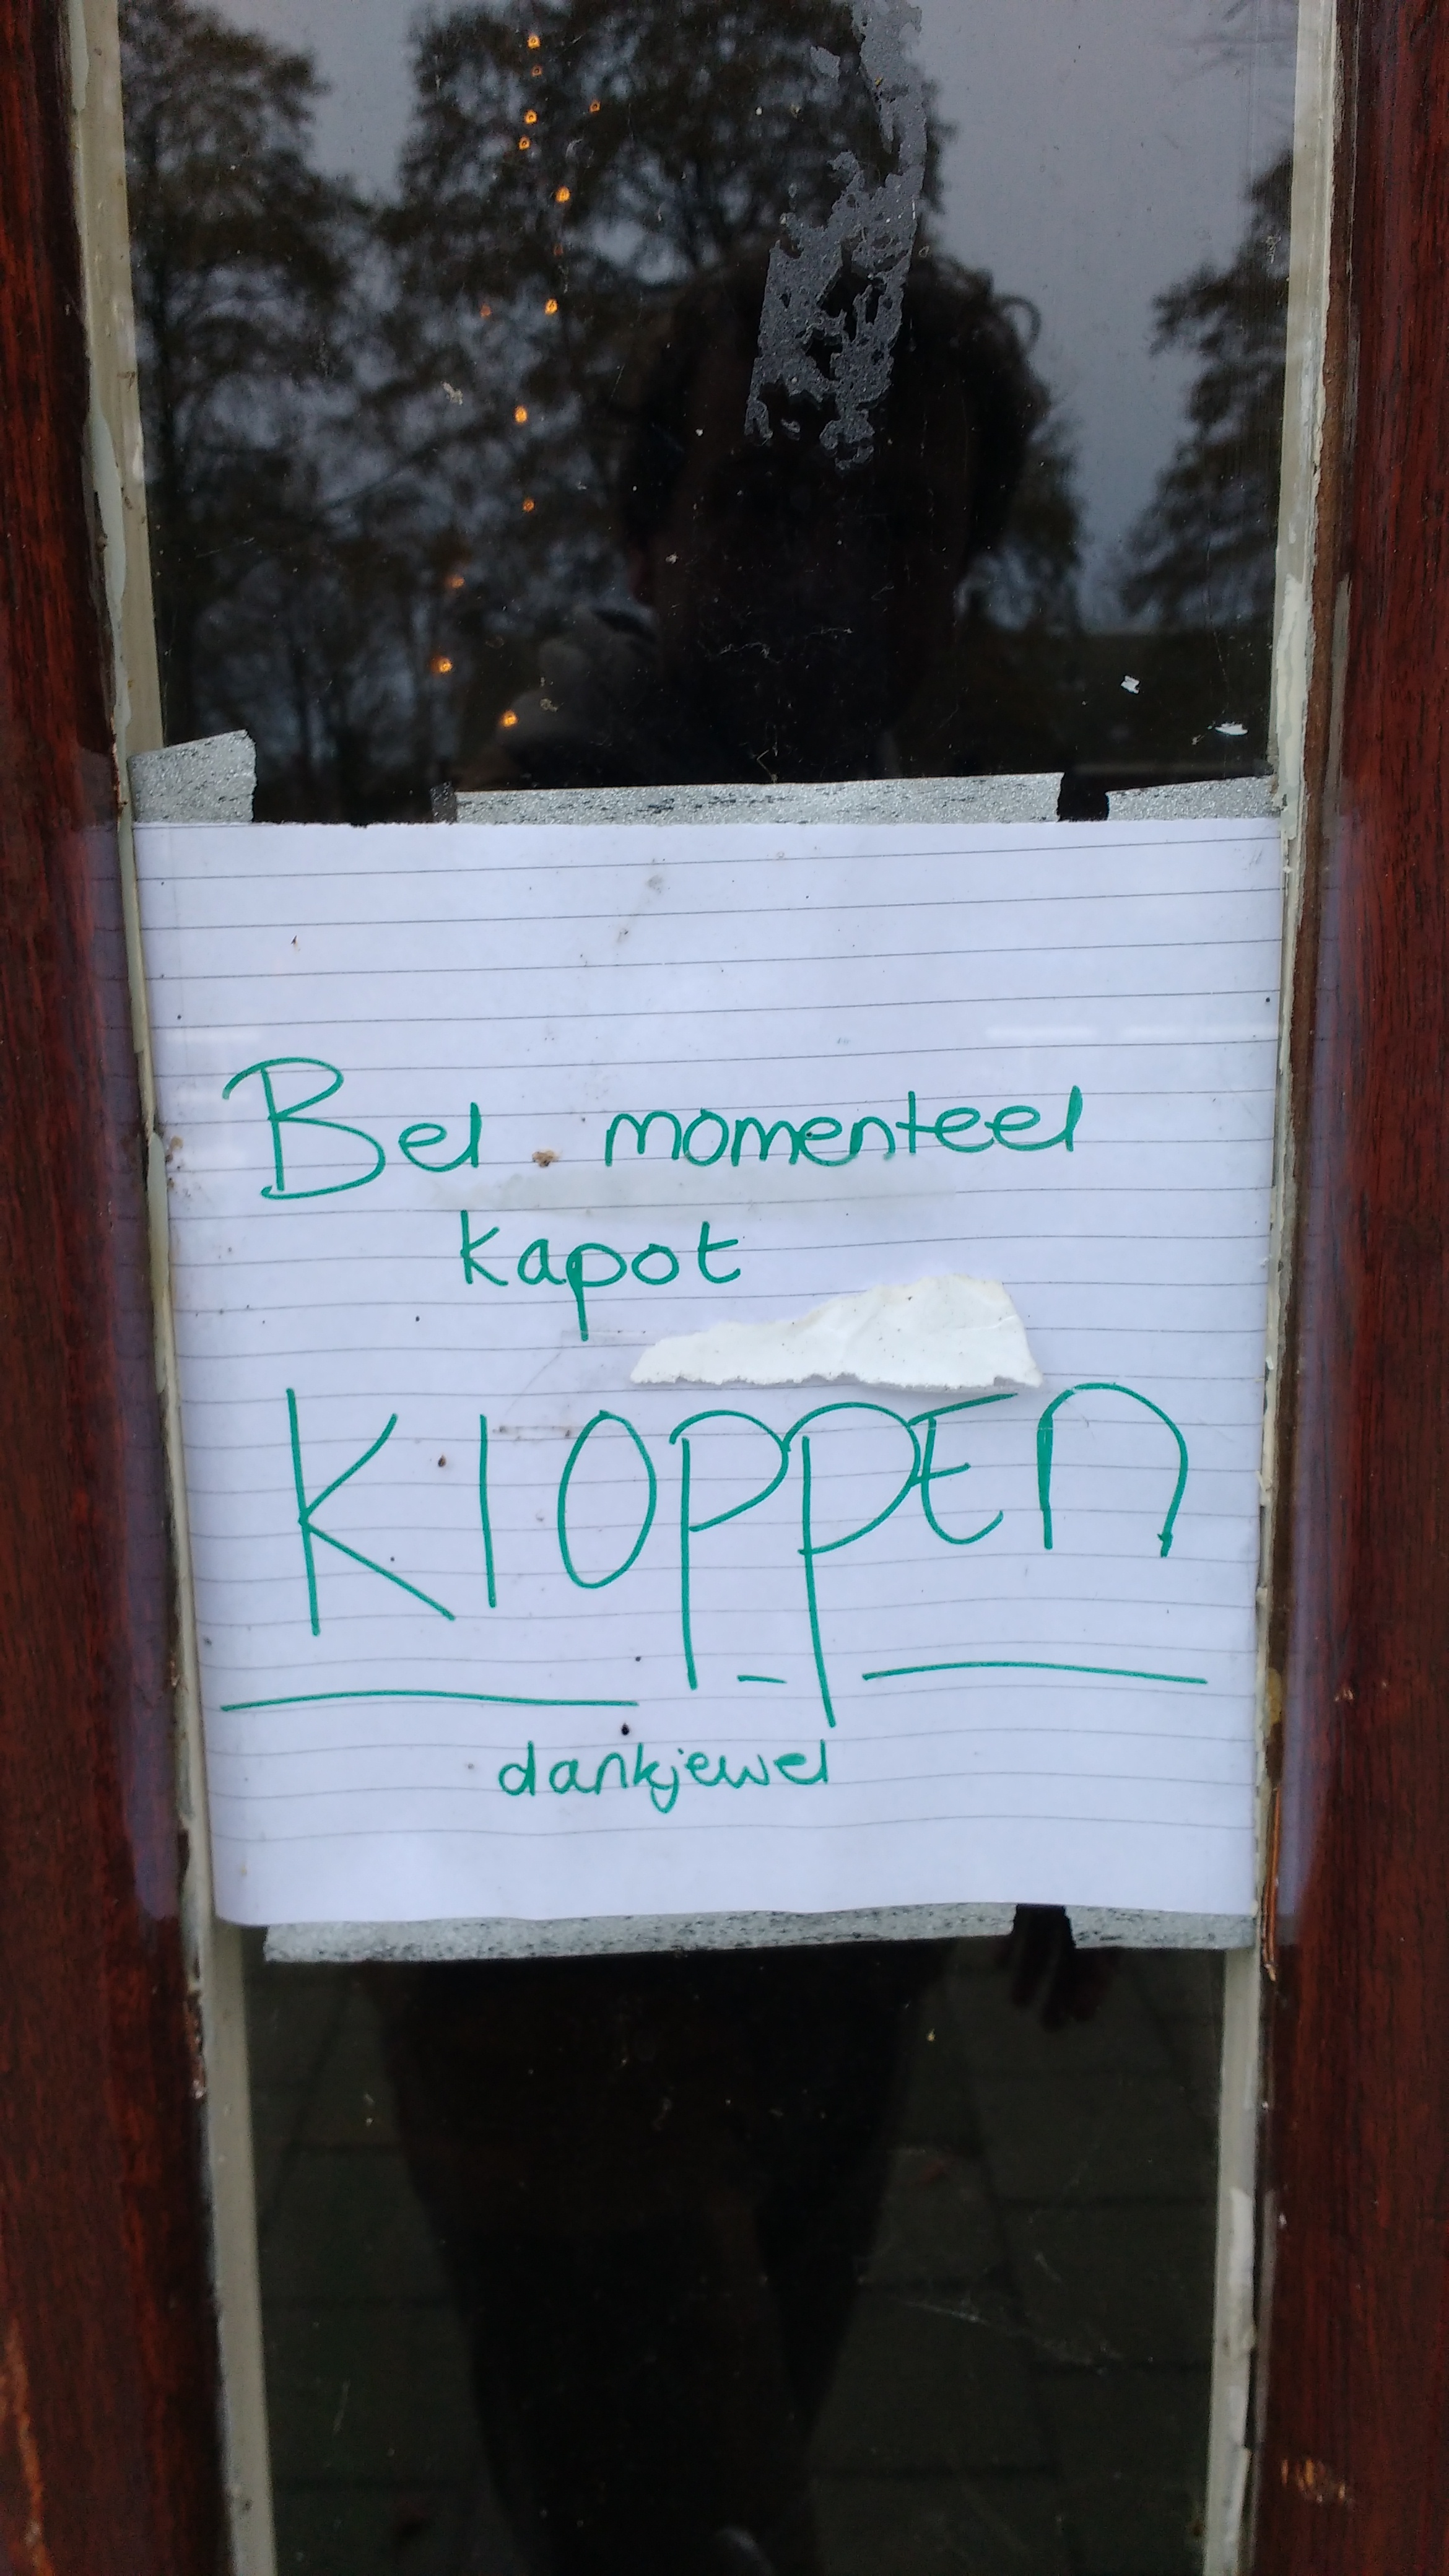 Bel momenteel
kapot
KlOPPEN
dankjewel